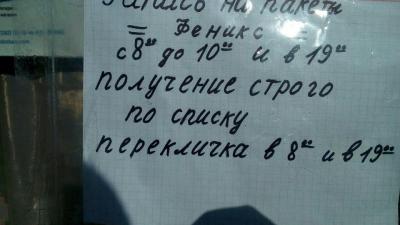 Запись на пакеты
= Феникс =
с 8⁰⁰ до 10⁰⁰ и в 19⁰⁰
получение строго
по списку
перекличка в 8⁰⁰ и в 19⁰⁰